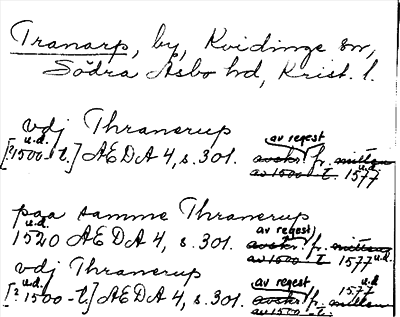 Tranarp, by, Kvidinge sn,
Södra Åsbo hd, Krist. l.
vdj Thranerup
u.d. av regest
[?1500-t.] AEDA 4, s. 301. avskr. fr. mitten
av 1500-t. 1577
paa samme Thranerup
u.d. av regest
1520 AEDA 4, s. 301. avskr. fr. mitten
av 1500-t. 1577 u.d.
vdj Thranerup
u.d. av regest 1577 u.d.
[?1500-t.] AEDA 4, s. 301. avskr. fr. mitten
av 1500-t.